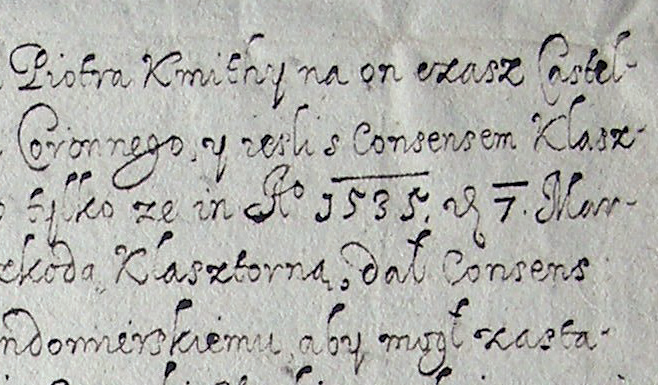 Piotra Kmithy na on czasz Castel-
Coronnego, y iesli s Consensem Klasz-
tylko ze in Ao 1535. 7. Mar-
szkodą Klasztorną, dał Consens
ndomierskiemu, aby mógł zasta-